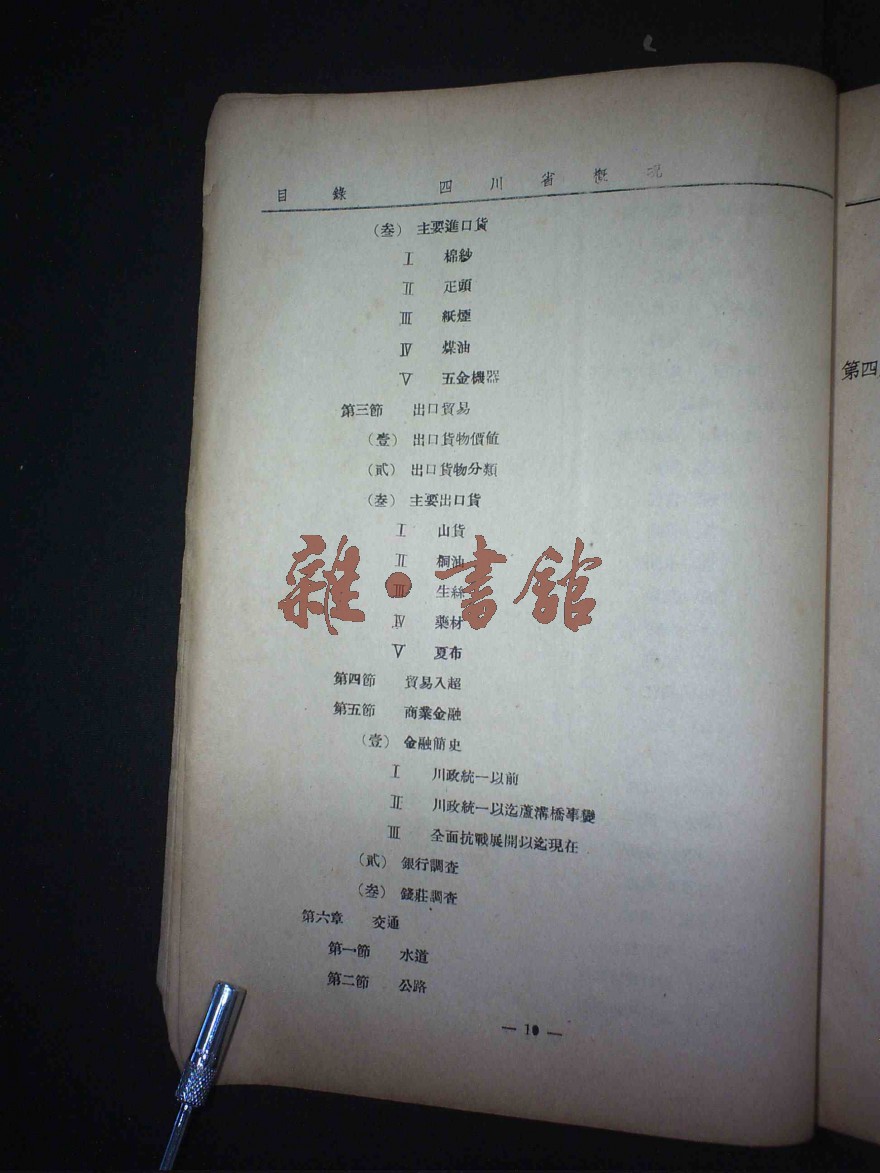 目錄 四川省概況
(叁) 主要進口貨
Ⅰ 棉紗
Ⅱ 疋頭
Ⅲ 紙煙
Ⅳ 煤油
Ⅴ 五金機器
第三節 出口貿易
(壹) 出口貨物價値
(貳) 出口貨物分類
(叁) 主要出口貨
Ⅰ 山貨
Ⅱ 桐油
Ⅲ 生絲
Ⅳ 藥材
Ⅴ 夏布
雜·書館
第四節 貿易入超
第五節 商業金融
(壹) 金融簡史
Ⅰ 川政統一以前
Ⅱ 川政統一以迄蘆溝橋事變
Ⅲ 全面抗戰展開以迄現在
(貳) 銀行調查
(叁) 錢莊調查
第六章 交通
第一節 水道
第二節 公路
— 10 —
第四